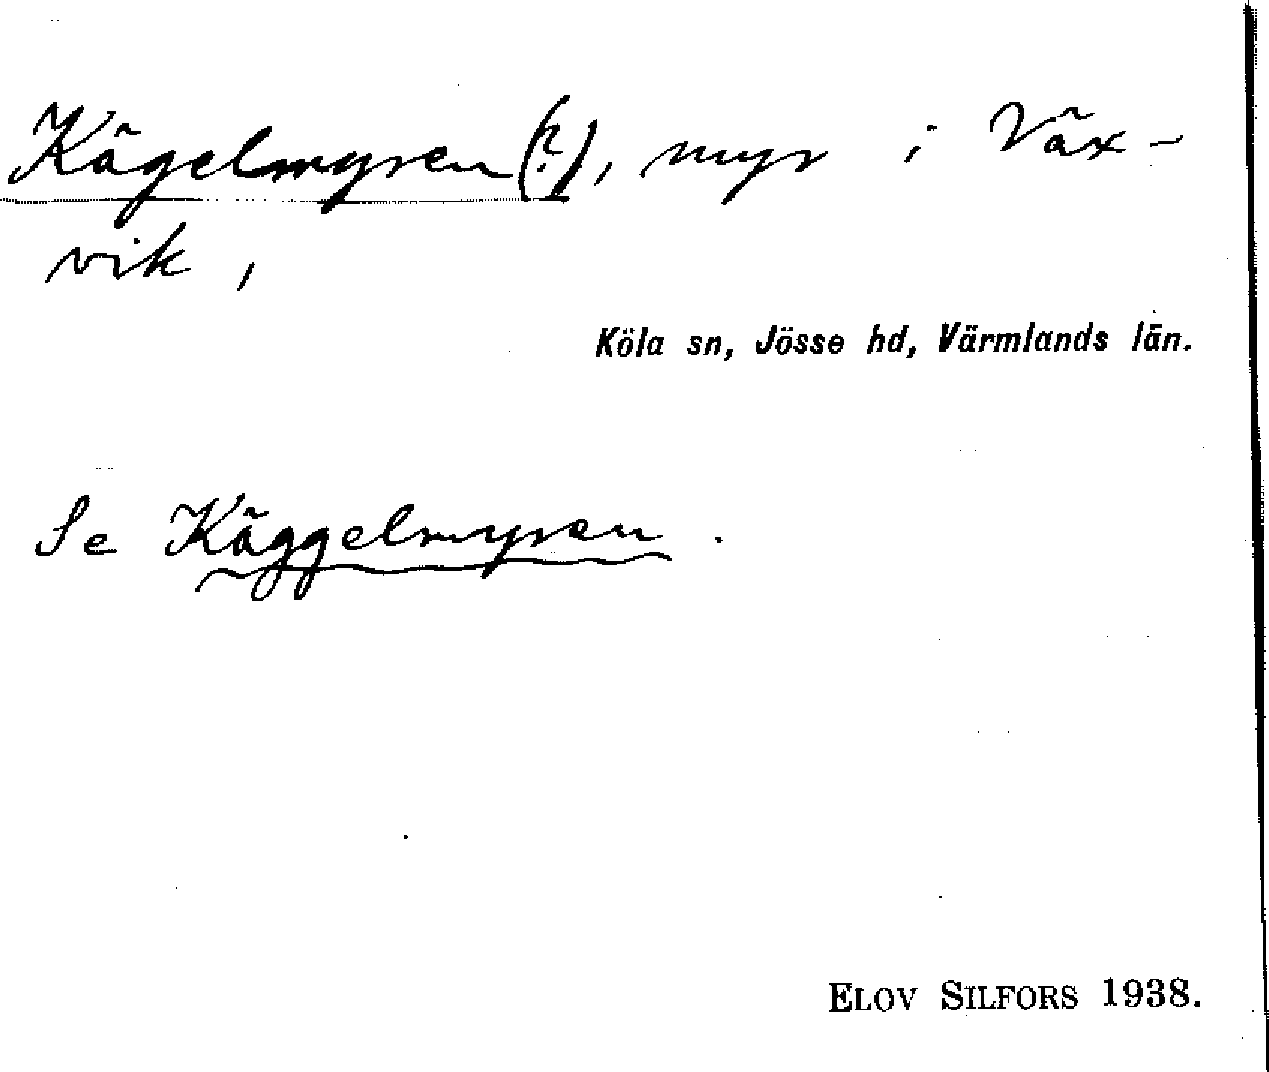 Kägelmyren(?), myr i Väx-
vik,
Köla sn, Jösse hd, Värmlands län.
Se Käggelmyren.
ELOV SILFORS 1938.